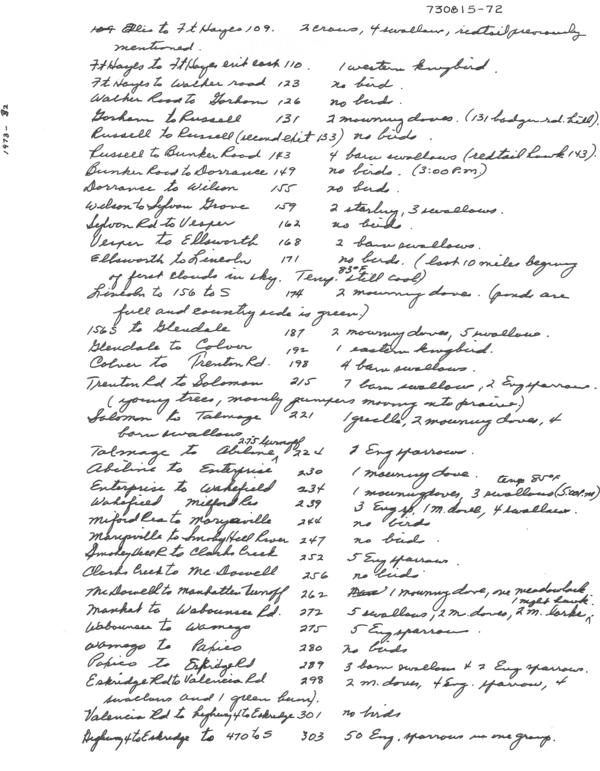 730815-72
1973- 82
Ellis to Ft Hayes 109. 2 crows, 4 swallow, redtail previously
mentioned.
Ft Hayes to Ft Hayes exit east 110. 1 western kingbird.
Ft Hayes to Walker road 123 no bird.
Walker Road to Gorham 126 no bird.
Gorham to Russell 131 2 mourning doves. (131 badger rd. kill).
Russell to Russell (second exit 133) no birds.
Russell to Bunker Road 143 4 barn swallows (redtail hawk 143).
Bunker Road to Dorrance 149 no birds. (3:00 P.m)
Dorrance to Wilson 155 no bird.
Wilson to Sylvan Grove 159 2 starling, 3 swallows.
Sylvan Rd to Vesper 162 no birds.
Vesper to Ellsworth 168 2 barn swallows.
Ellsworth to Lincoln 171 no birds. (last 10 miles begining
of first clouds in sky. Temp. 83°F still cool)
Lincoln to 156 to S 174 2 mourning doves. (ponds are
full and country side is green.)
156 S to Glendale 187 2 mourning doves, 5 swallow.
Glendale to Colver 192 1 eastern kingbird.
Colver to Trenton Rd. 198 4 barn swallows.
Trenton Rd to Solomon 215 7 barn swallow, 2 Eng sparrow.
(young trees, mainly junipers moving into prairie)
Solomon to Talmage 221 1 grackle, 2 mourning doves, 4
barn swallows
Talmage to Abilene 275 turnoff 224 2 Eng sparrows.
Abiline to Enterprise 230 1 mourning dove. temp 85°F
Enterprise to Wakefield 234 1 mourning doves, 3 swallows (5:00 P.m)
Wakefield Milford Res 239 3 Eng sp. 1 M. dove, 4 swallow.
Miford Res to Marysville 244 no birds
Marysville to Smoky Hill River 247 no birds.
Smokey Hill R to Clarks Creek 252 5 Eng sparrows.
Clarks Creek to Mc Dowell 256 no birds
Mc Dowell to Manhatten turnoff 262 1 mourning dove, one meadowlark, 1 night hawk.
Manhat to Wabounsee Rd. 272 5 swallows, 2 M. doves, 2 M. larks,
Wabounsee to Wamego 275 5 Eng sparrow.
Wamego to Paxico 280 no birds
Paxico to Eskridge Rd 289 3 barn swallow & 2 Eng sparrows.
Eskridge Rd to Valencia Rd 298 2 m. doves, 4 Eng. sparrow, 4
swallows and 1 green heron).
Valencia Rd to highway 4 to Eskredge 301 no birds
Highway 4 to Eskredge to 470 to S 303 50 Eng. sparrows in one group.